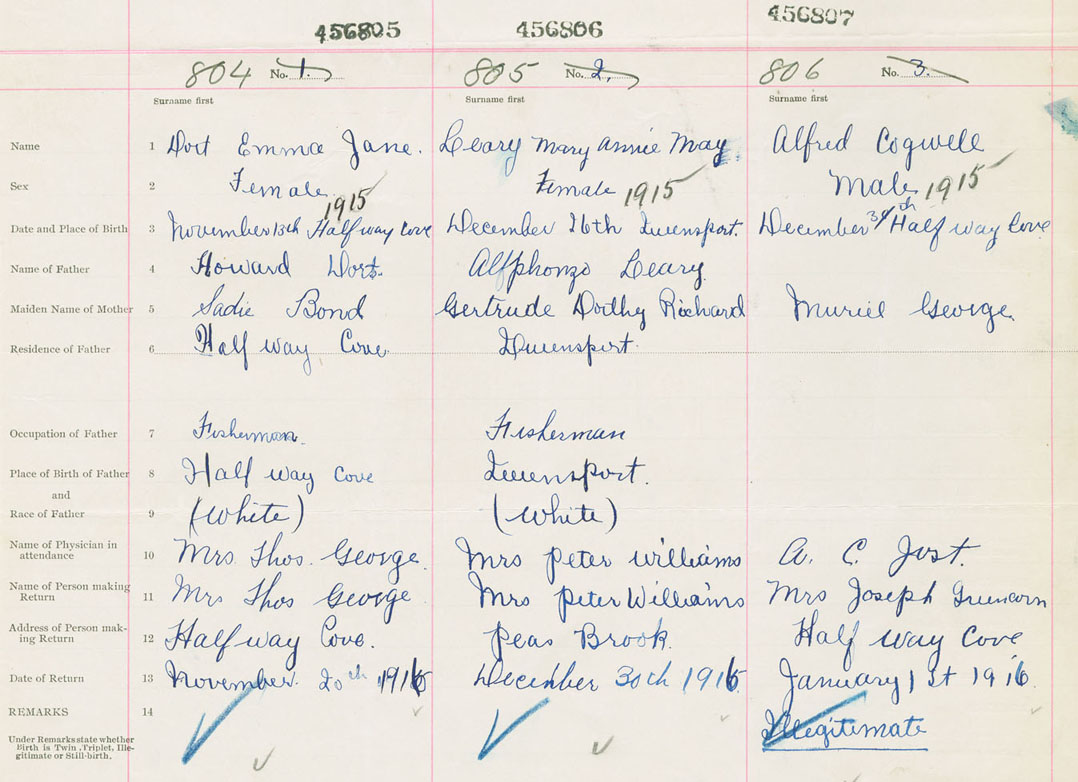 456805 456806 456807
804 No. 1. 805 No. 2. 806 No. 3.
Surname first Surname first Surname first
Name 1 Dort Emma Jane. Leary Mary Annie May. Alfred Cogwell
Sex 2 Female Female Male
1915 1915 1915
Date and Place of Birth 3 November 13th Half way Cove December 26th Queensport. December 31th Half way Cove
Name of Father 4 Howard Dort. Alfphonzo Leary.
Maiden Name of Mother 5 Sadie Bond Gertrude Dorthy Richard Muriel George
Residence of Father 6 Half way Cove Queensport.
Occupation of Father 7 Fisherman. Fisherman
Place of Birth of Father 8 Half way Cove Queensport.
and
Race of Father 9 (White) (White)
Name of Physician in
attendance 10 Mrs Thos. George. Mrs Peter Williams A. C. Jost.
Name of Person making
Return 11 Mrs Thos George Mrs Peter Williams Mrs Joseph Greencorn
Address of Person mak-
ing Return 12 Half way Cove. Peas Brook. Half way Cove
Date of Return 13 November. 20th December 30th January 1st 1916.
REMARKS 14 Illegitimate
Under Remarks state whether
Birth is Twin, Triplet, Ille-
gitimate or Still-birth.